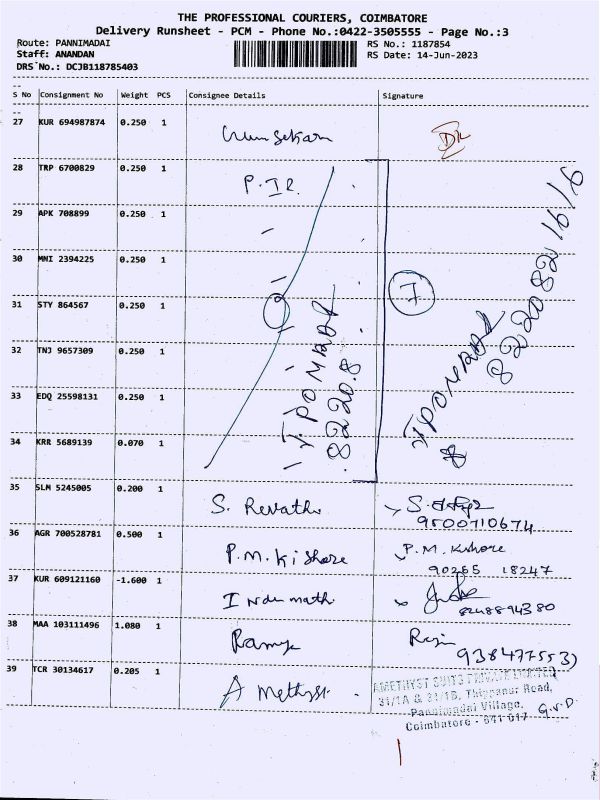 THE PROFESSIONAL COURIERS, COIMBATORE
Delivery Runsheet - PCM - Phone No.:0422-3505555 - Page No.:3
Route: PANNIMADAI
RS No.: 1187854
Staff: ANANDAN
RS Date: 14-Jun-2023
DRS No.: DCJB118785403
--
S No Consignment No Weight PCS Consignee Details Signature
--
27 KUR 694987874 0.250 1
28 TRP 6700829 0.250 1 P.
29 APK 708899 0.250 1
30 MNI 2394225 0.250 1
31 STY 864567 0.250 1 7
32 TNJ 9657309 0.250 1
33 EDQ 25598131 0.250 1
34 KRR 5689139 0.070 1
35 SLM 5245005 0.200 1 S. Revathi S.
9500710674
36 AGR 700528781 0.500 1 P.M. Kishore P.M. Kishore
90265 18247
37 KUR 609121160 -1.600 1 Indumathi
8248894380
38 MAA 103111496 1.080 1 Ramya
39 TCR 30134617 0.205 1 Amethyst
AMETHYST SUITS PRIVATE LIMITED
31/1A & 31/1B, Thippanur Road,
Pannimadai Village,
Coimbatore - 641 017